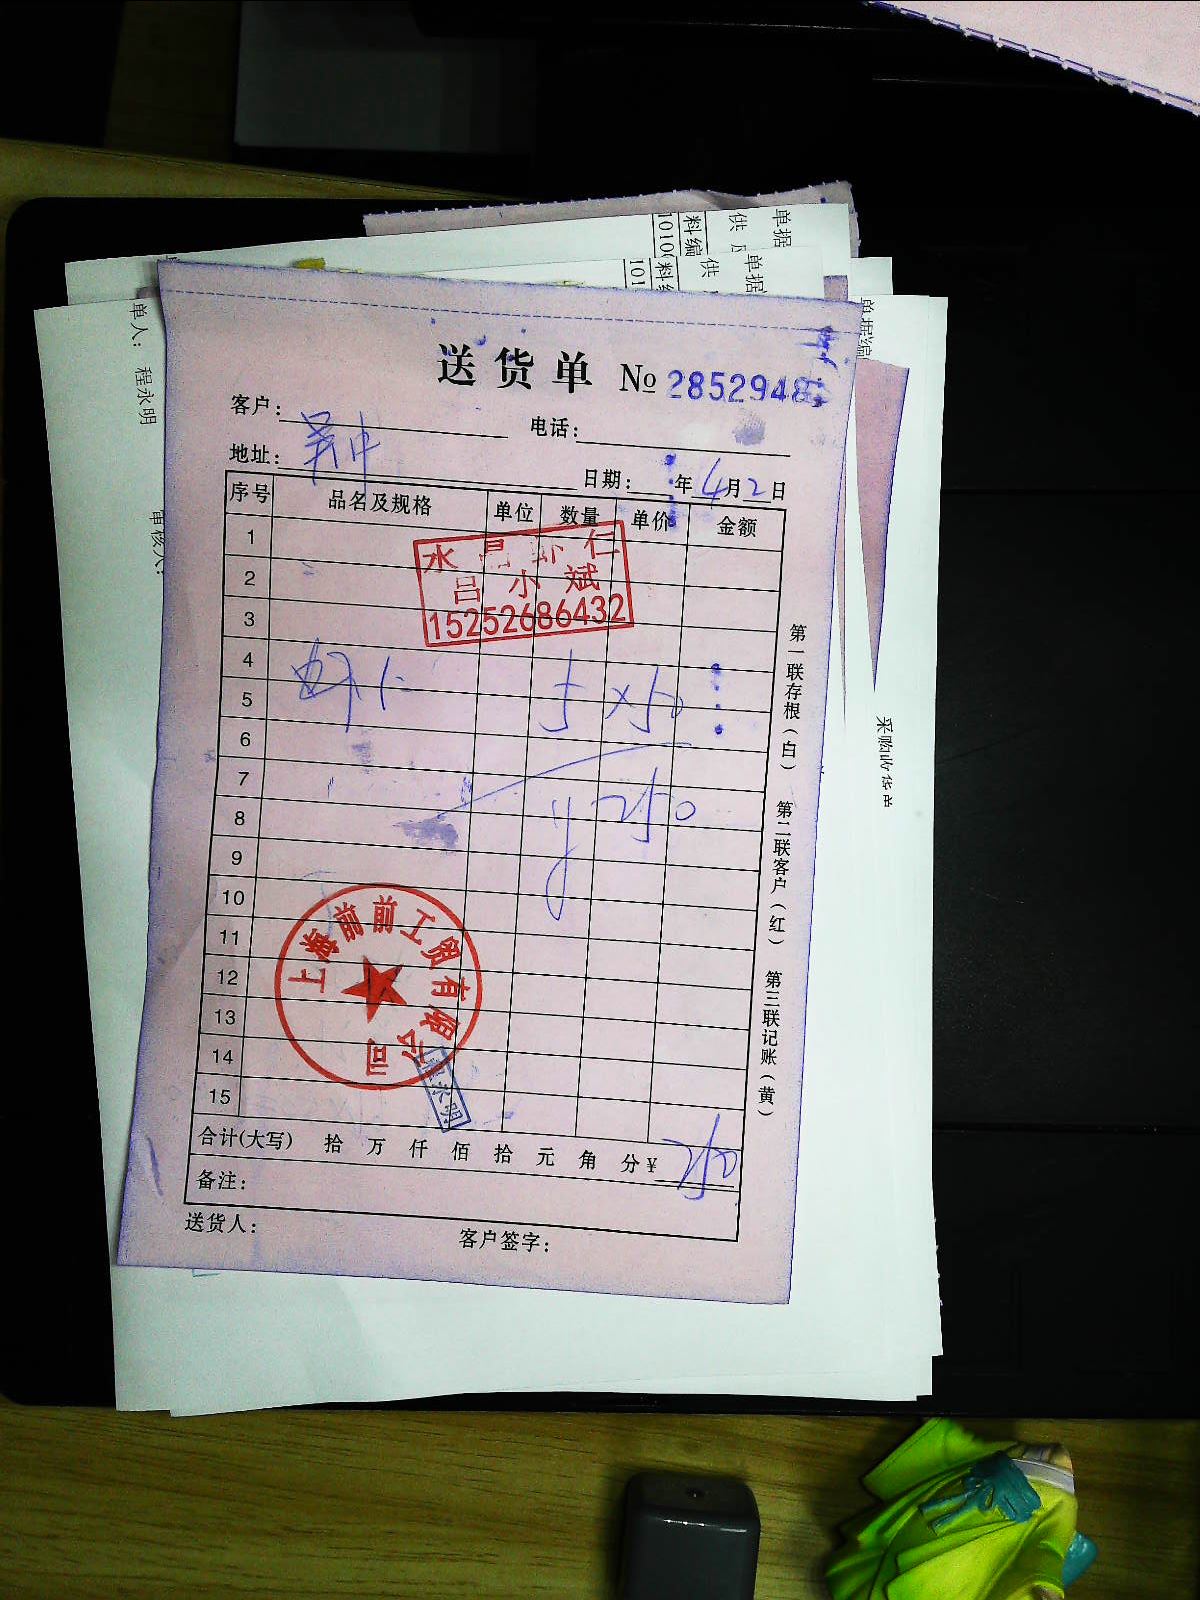 单据
供
料编
1010
单据
供
料
101
单据编
单人： 程永明
审核人：
采购收货单
送货单 № 2852948
客户： 吴中
电话：
地址：
日期： 年 4月2日
序号 品名及规格 单位 数量 单价 金额
1
2
3
4
5
6
7
8
9
10
11
12
13
14
15
水晶虾仁
吕小斌
15252686432
虾仁 5 × 50
250
上海前前工贸有限公司
程永明
合计(大写) 拾 万 仟 佰 拾 元 角 分 ¥ 250
备注：
送货人： 客户签字：
第一联存根（白） 第二联客户（红） 第三联记账（黄）